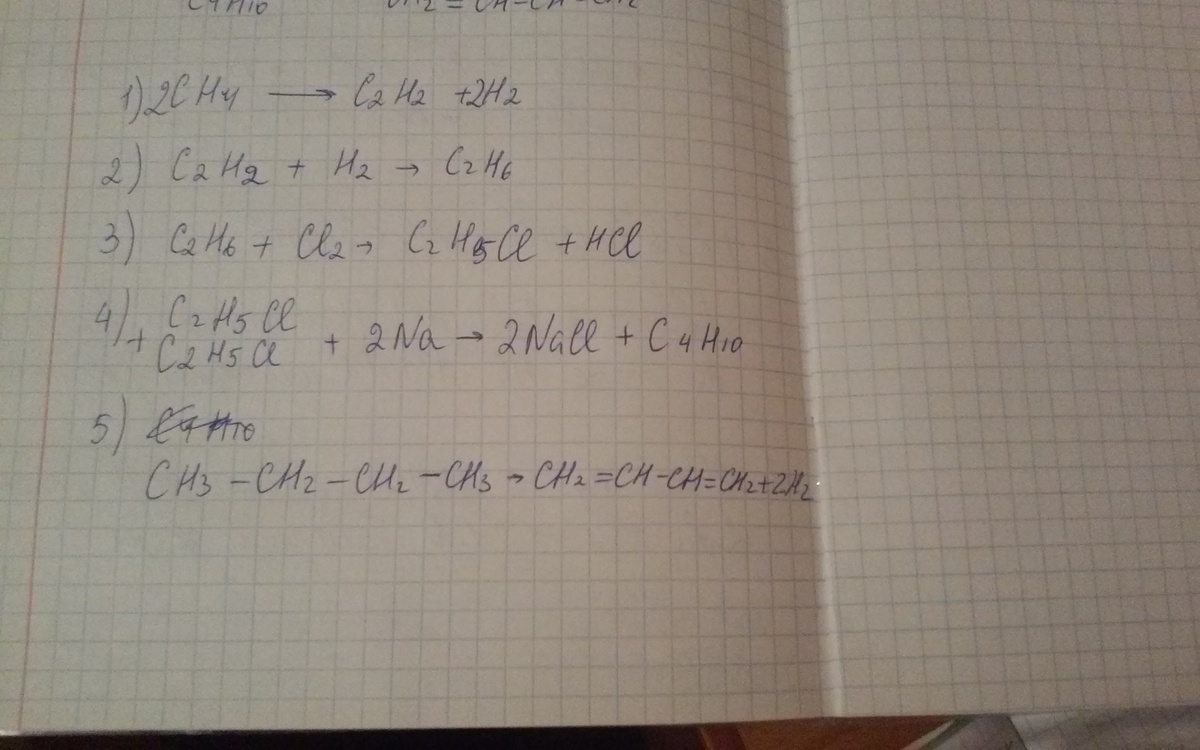 C4H10 CH2=CH-CH=CH2
1) 2CH4 ⟶ C2H2 +2H2
2) C2H2 + H2 → C2H6
3) C2H6 + Cl2 → C2H5Cl + HCl
4) C2H5Cl
+ C2H5Cl + 2Na → 2NaCl + C4H10
5) C4H10
CH3 – CH2 – CH2 – CH3 → CH2 = CH-CH=CH2+2H2